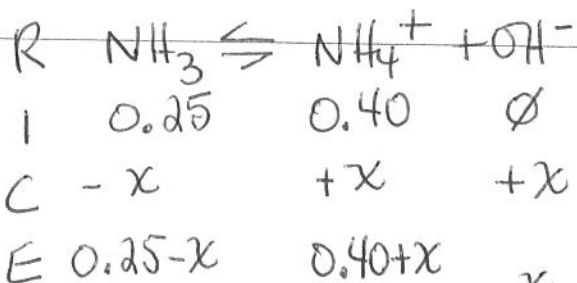 R NH₃ ⇌ NH₄⁺ + OH⁻
I 0.25 0.40 Ø
C -x +x +x
E 0.25-x 0.40+x x